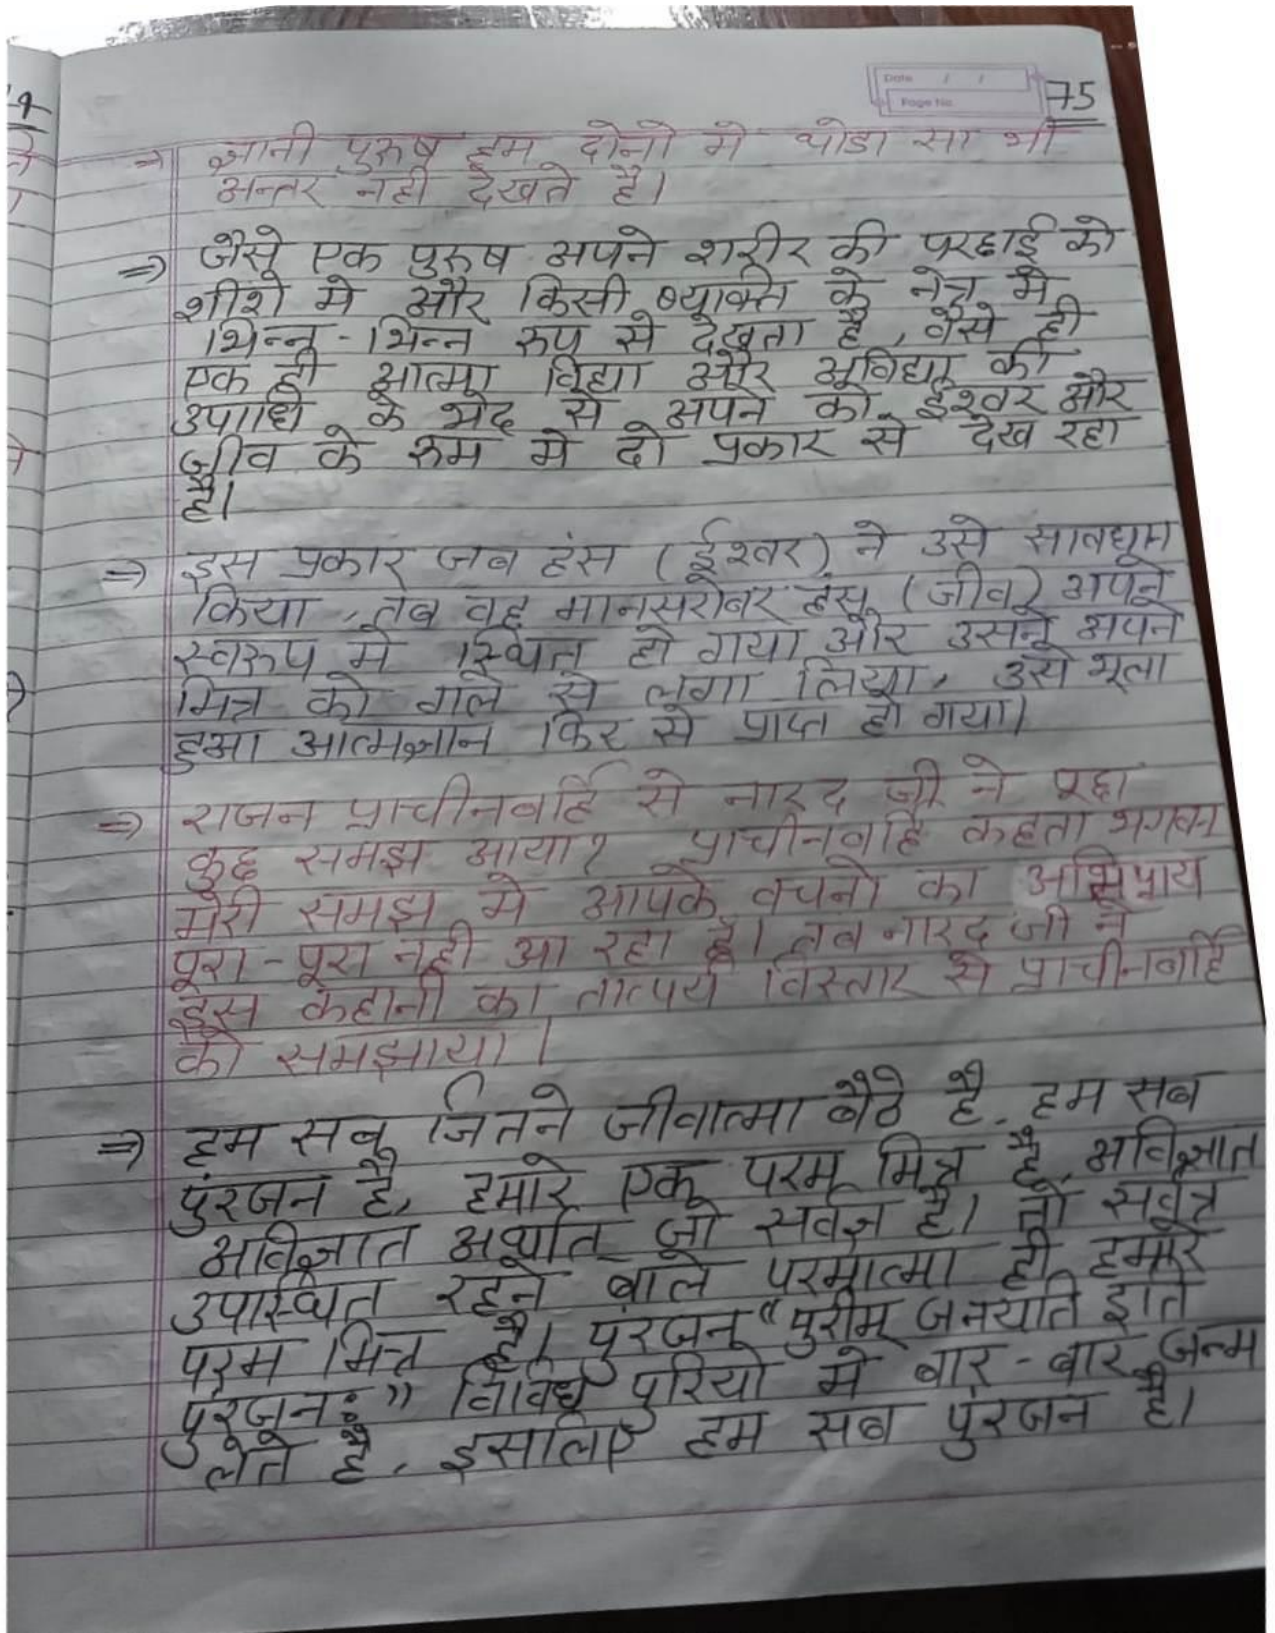 Date / /
Page No.
75
⇒ ज्ञानी पुरुष हम दोनो मे थोडा सा भी
अन्तर नही देखते है।
⇒ जैसे एक पुरुष अपने शरीर की परछाई को
शीशे मे और किसी व्यक्ति के नेत्र मे
भिन्न-भिन्न रूप से देखता है, वैसे ही
एक ही आत्मा विद्या और अविद्या की
उपाधि के भेद से अपने को ईश्वर और
जीव के रूम मे दो प्रकार से देख रहा
है।
⇒ इस प्रकार जब हंस (ईश्वर) ने उसे सावधान
किया, तब वह मानसरोबर हंस (जीव) अपने
स्वरूप मे स्थित हो गया और उसने अपने
मित्र को गले से लगा लिया, उसे भूला
हुआ आत्मज्ञान फिर से प्राप्त हो गया।
⇒ राजन प्राचीनबर्हि से नारद जी ने पूछा
कुछ समझ आया? प्राचीनबर्हि कहता भगवन
मेरी समझ मे आपके वचनो का अभिप्राय
पूरा-पूरा नही आ रहा है। तब नारद जी ने
इस कहानी का तात्पर्य विस्तार से प्राचीनबर्हि
को समझाया।
⇒ हम सब जितने जीवात्मा बैठे है, हम सब
पुंरजन है, हमारे एक परम मित्र है, अविज्ञात
अविज्ञात अर्थात जो सर्वज्ञ है। तो सर्वत्र
उपास्थित रहने बाले परमात्मा ही हमारे
परम मित्र है। पुंरजन "पुरीम् जनयति इति
पुंरजनः" विविध पुरियो मे बार-बार जन्म
लेते है, इसलिए हम सब पुंरजन है।